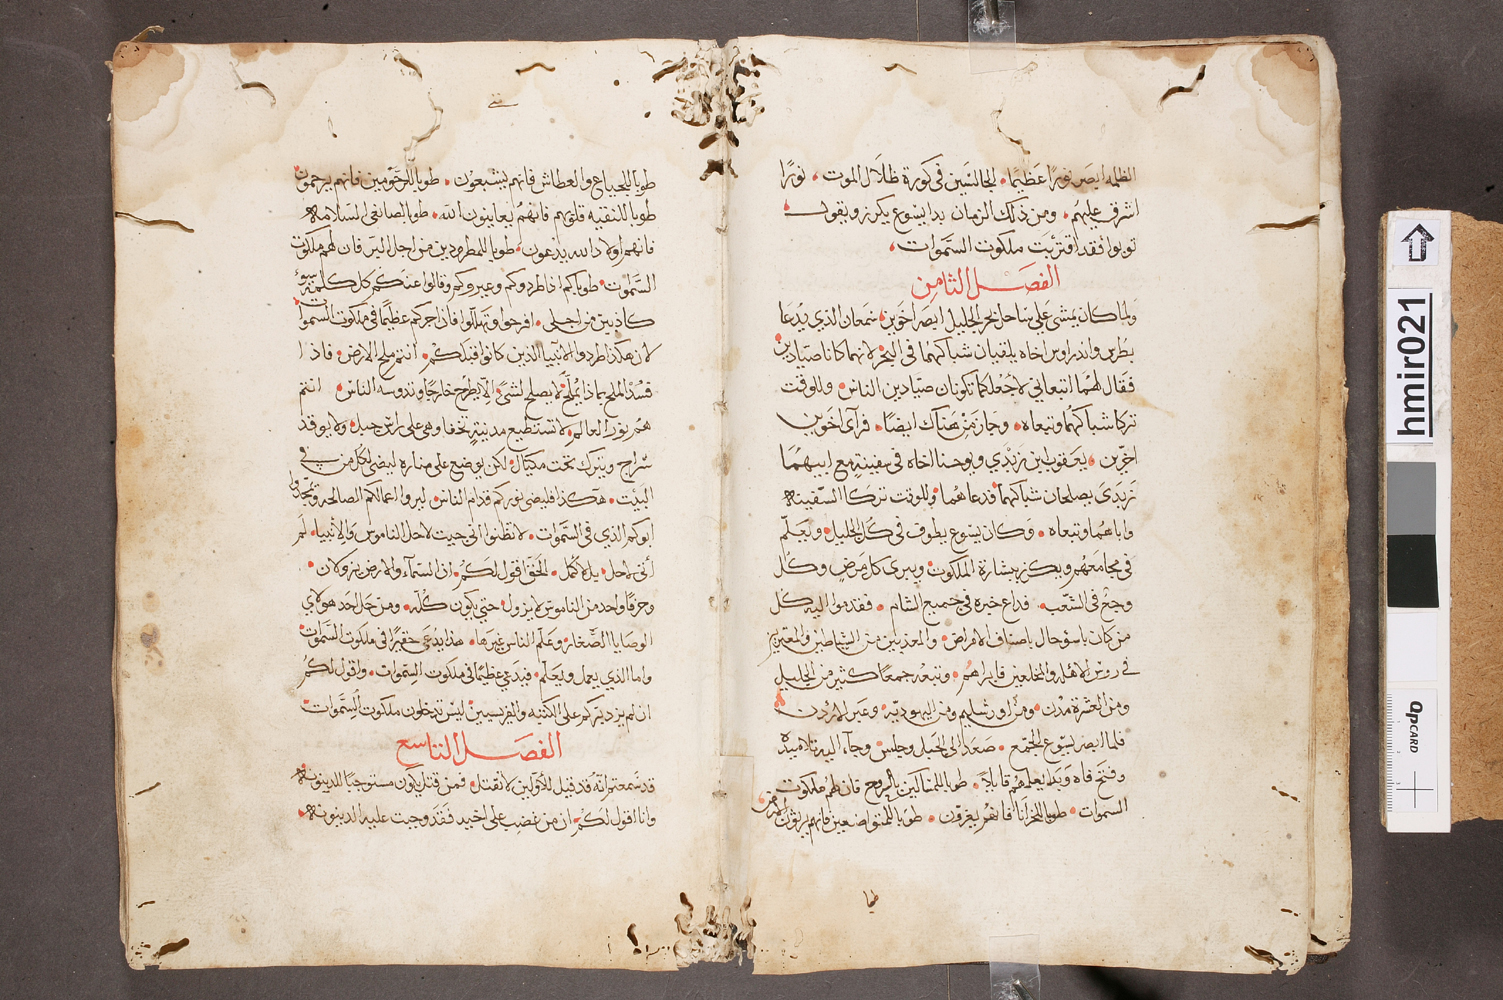 الظلمه ابصر نورًا عَظيمًا. لجالسَين في كَورة ظلَال الموت. نورًا
اشرق عليهُم. ومن ذلك الزمان بدا يسُوع يكرز ويقول
توبوا فقد اقترَبَت ملكوت السَّموات.
الفصَل الثامِن
ولما كان يمشي على سَاحل بحر الجليل ابصَر اخوَين سَمعان الذي يُدعَا
بطرس واندراوس اخاه يلقيان شباكهما في البحرْ لانهما كانا صيّادين
فقال لهُما اتبعاني لاجْعلكما تكونان صيّادين الناس. وللوقت
تركا شباكهُما وتبعاه. وجَاز مِنْ هَناك ايضًا. فرآى اخوين
اخرّين. يعقوب ابن زبَدي ويوحنا اخاه في سفينةٍ مع ابيهمَا
زَبَدَى يصلحان شباكهُما فدعاهُما وللوقت تركا السّفينه
واباهُما وتبعاه. وَكان يسُوع يطوف في كُل الجليل. ويُعَلّم
في مجامعَهم ويكرز ببشارة الملكوت. ويبرى كل مَرض وكُل
وجع في الشَعب. فذاع خبره في جميع الشام. فقدموا اليه كل
من كان باسؤ حال باصناف الامراض. والمعذبين من الشياطين والمعتريز
في روس الاهله والمخلعين فابراهُم. وتبعه جمعًا كثير من الجليل
ومن العَشرة مدُن. ومن اورشليم ومن اليهوديّه. وعبر الاردن
فلما ابصر يسُوع الجَمع. صَعَد الى الجَبل وجلس. وجآء اليه تلاميذه
وفتح فاه وَبَدا يعلمهُم قايلاً. طوبا للمسَاكين بالروح فان لهم ملكوت
السموات. طوبا للحزاَنا فانهُم يعَزون. طوبا للمتواضعين فانهم يرثون الارض
طوبا للجياع والعطاش فانهم يشبعُون. طوبا للرَحَومين فانهم يرحمون
طوبا للنقيه قلوبهم فانهُم يُعاينون الله. طوبا لصانعي السَلامه
فانهم اولاد الله يدعون. طوبا للمطرودين من اجل البر فان لهم ملكوت
السَّموات. طوباكم اذا طردوكم وعيروكم وقالوا عنكُم كل كلمة سوء
كاذبين من اجلي. افرحوا وتهللوا فان اجركم عظيمًا في ملكوت السموات
لان هكذا طردوا الانبيا الذين كانوا قبلكُم. انتم ملح الارض. فاذا
فسُدَ الملح بماذا يُملّح. لا يصلح لشئ الا يطرح خارجًا وتدوسه الناس. انتم
هُم نور العالم. لا تستطيع مدينةٍ تخفا وهي على راس جبل. ولا يوقد
سَراج ويترك تحت مكيال. لكن يوضع على مناره ليضى لكل من في
البيْت. هَكذا فليضى نوركم قدام الناس. ليروا اعمالكم الصالحه ويمجّدوا
ابوكم الذي في السَّموات. لا تظُنوا اني جيت لاحل الناموس والانبيا. لم
اتى لاحل. بل لاكمُل. الحَق اقول لكُم. ان السمآء والارض يزولان.
وحرفًا واحد من الناموس لا يزول. حتي يكون كُله. ومن حَل احد هولاي
الوصَايا الصَّغار. وعَلم الناس غيرها. هذا يُدعَى حقيرًا في ملكوت السّموات
واما الذي يعمل ويُعَلّم. فيدَعى عظيمًا في ملكوت السموات. واقول لكُم
ان لم يزد بركم على الكتبه والفريسيين ليس تدخلون ملكوت السّموات.
الفصَل التاسع
قد سَمعتم انّه قد قيل للاَولين لا تقتل. فمن قتل يكون مستوجبًا للدينونه
وانا اقول لكُم. ان من غضب على اخيه فقَد وجبت عليه الدينونه.
طوبا
hmir021
OpCARD